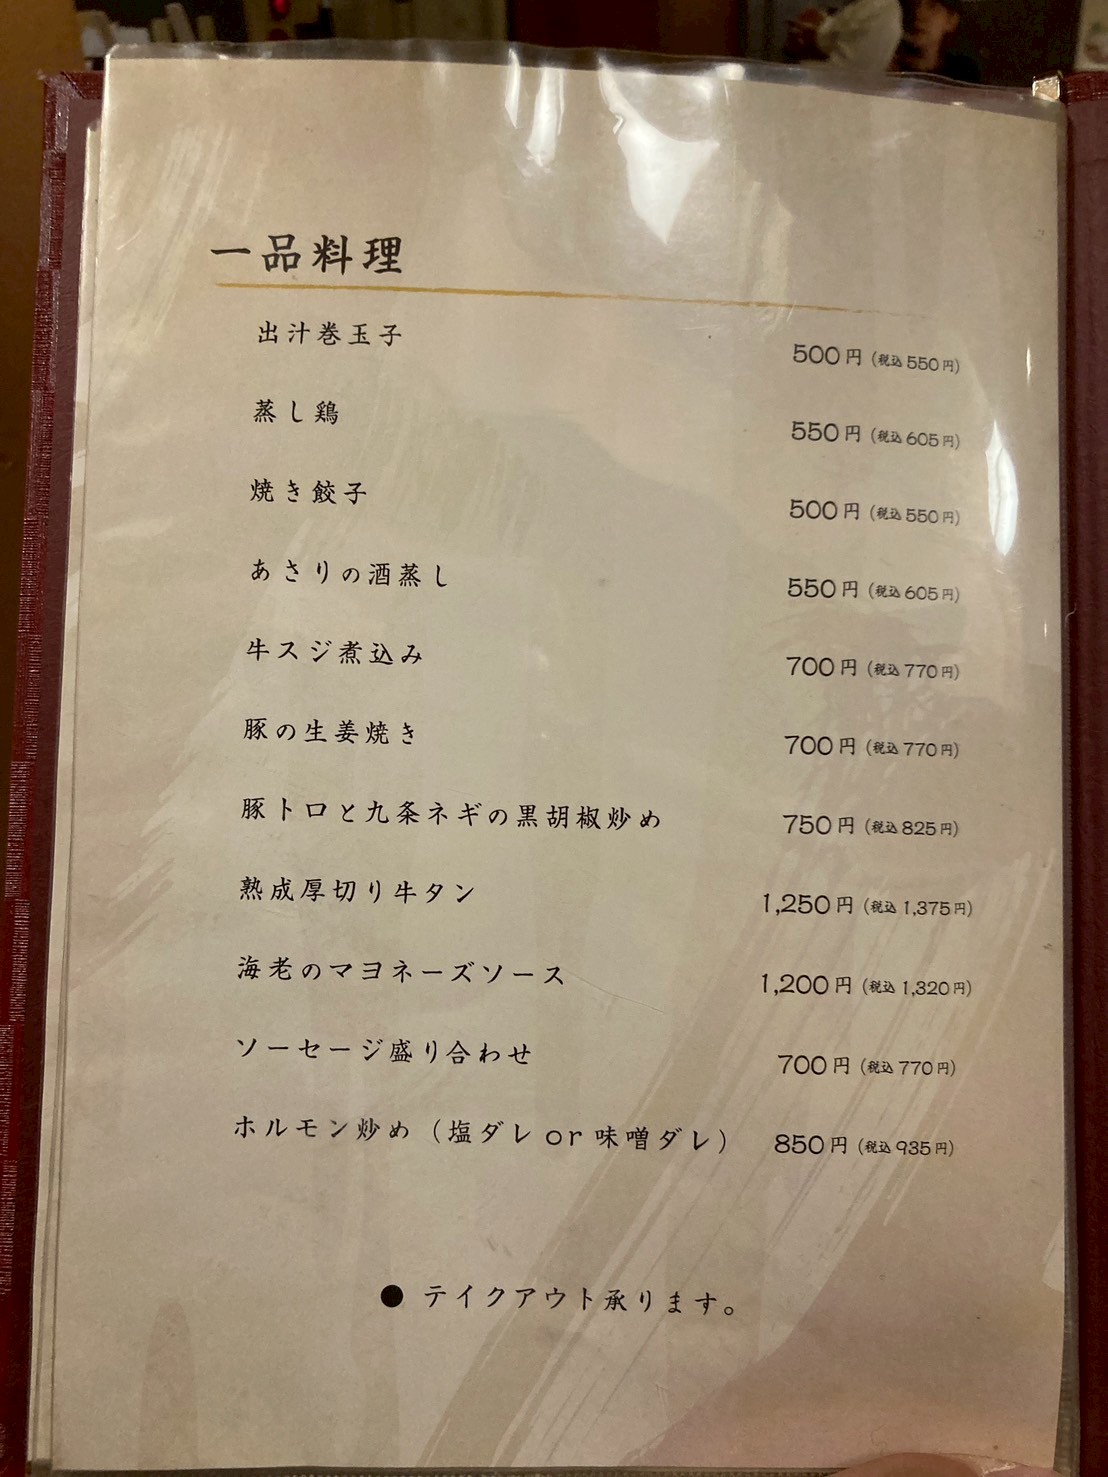 一品料理
出汁巻玉子 500円（税込550円）
蒸し鶏 550円（税込605円）
焼き餃子 500円（税込550円）
あさりの酒蒸し 550円（税込605円）
牛スジ煮込み 700円（税込770円）
豚の生姜焼き 700円（税込770円）
豚トロと九条ネギの黒胡椒炒め 750円（税込825円）
熟成厚切り牛タン 1,250円（税込1,375円）
海老のマヨネーズソース 1,200円（税込1,320円）
ソーセージ盛り合わせ 700円（税込770円）
ホルモン炒め（塩ダレor味噌ダレ） 850円（税込935円）
● テイクアウト承ります。